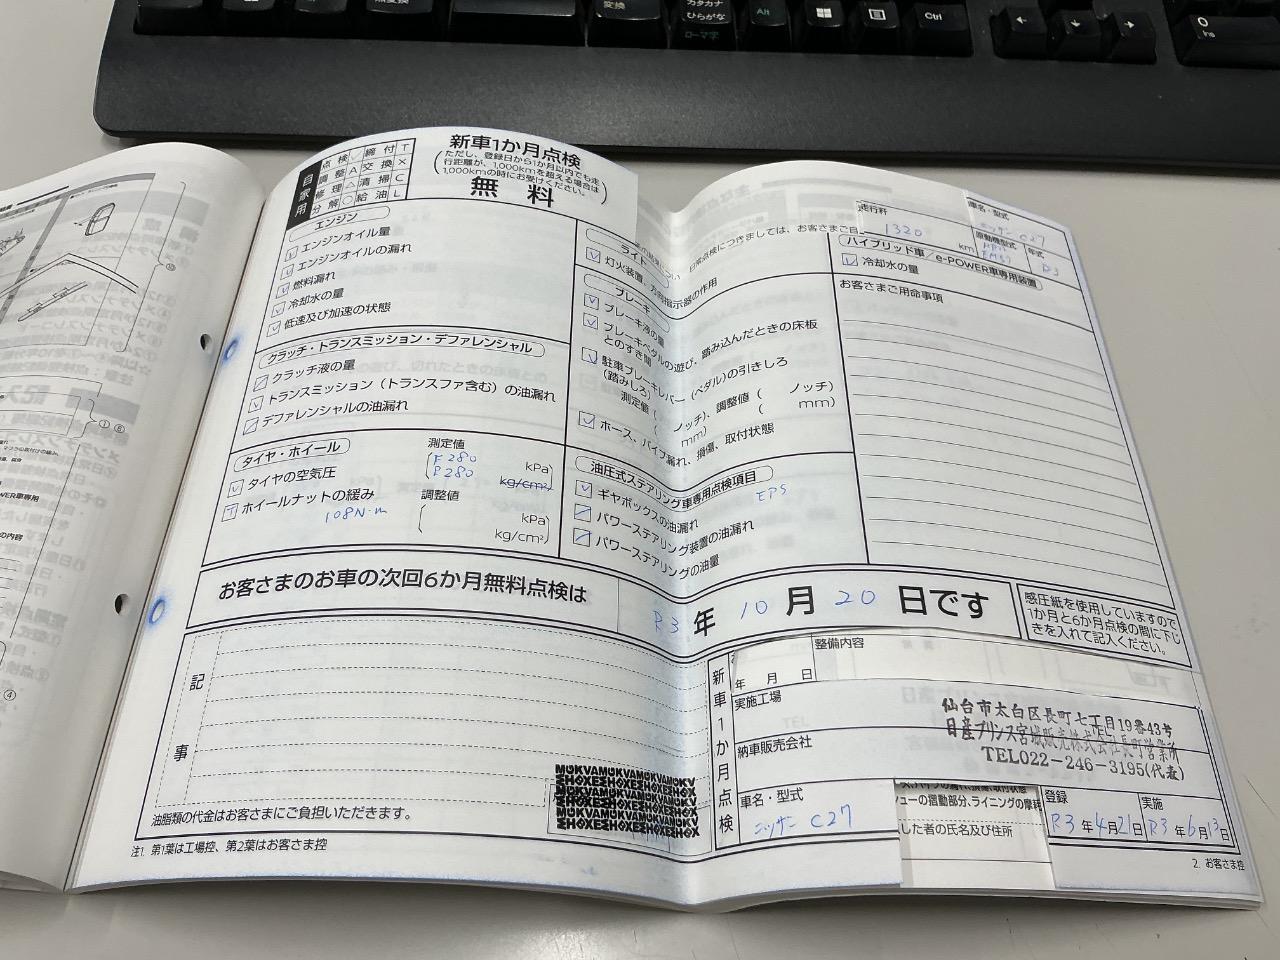 変換
カタカナ
ひらがな
ローマ字
Alt
Ctrl
0
Ins
自家用
点検 ✓ 締付 T
調整 A 交換 ×
修理 △ 清掃 C
分解 ○ 給油 L
新車1か月点検
(ただし、登録日から1か月以内でも走
行距離が、1,000kmを超える場合は
1,000kmの時にお受けください。)
無料
エンジン
エンジンオイル量
エンジンオイルの漏れ
燃料漏れ
冷却水の量
低速及び加速の状態
クラッチ・トランスミッション・デファレンシャル
クラッチ液の量
トランスミッション(トランスファ含む)の油漏れ
デファレンシャルの油漏れ
タイヤ・ホイール
タイヤの空気圧
ホイールナットの緩み
108N·m
測定値
F 280
R 280
kPa
kg/cm²
調整値
kPa
kg/cm²
ライト
灯火装置、方向指示器の作用
ブレーキ
ブレーキ液の量
ブレーキペダルの遊び、踏み込んだときの床板
とのすき間
駐車ブレーキレバー(ペダル)の引きしろ
(踏みしろ)
測定値( ノッチ)、調整値( ノッチ)
mm) ( mm)
ホース、パイプ漏れ、損傷、取付状態
油圧式ステアリング車専用点検項目
EPS
ギヤボックスの油漏れ
パワーステアリング装置の油漏れ
パワーステアリングの油量
日常点検につきましては、お客さまご自
走行杆
1320 km
車名・型式
ニッサン C27
原動機型式
年式
R3
ハイブリッド車/e-POWER車専用装置
冷却水の量
お客さまご用命事項
お客さまのお車の次回6か月無料点検は
R3 年 10 月 20 日です
感圧紙を使用していますので
1か月と6か月点検の間に下じ
きを入れて記入ください。
記事
油脂類の代金はお客さまにご負担いただきます。
注1. 第1葉は工場控、第2葉はお客さま控
新車1か月点検
年 月 日
整備内容
実施工場
納車販売会社
仙台市太白区長町七丁目19番43号
日産プリンス宮城販売株式会社長町営業所
TEL022-246-3195(代表)
車名・型式
ニッサン C27
ューの摺動部分、ライニングの摩耗
した者の氏名及び住所
登録
R3 年 4月21日
実施
R3 年 6月13日
2. お客さま控